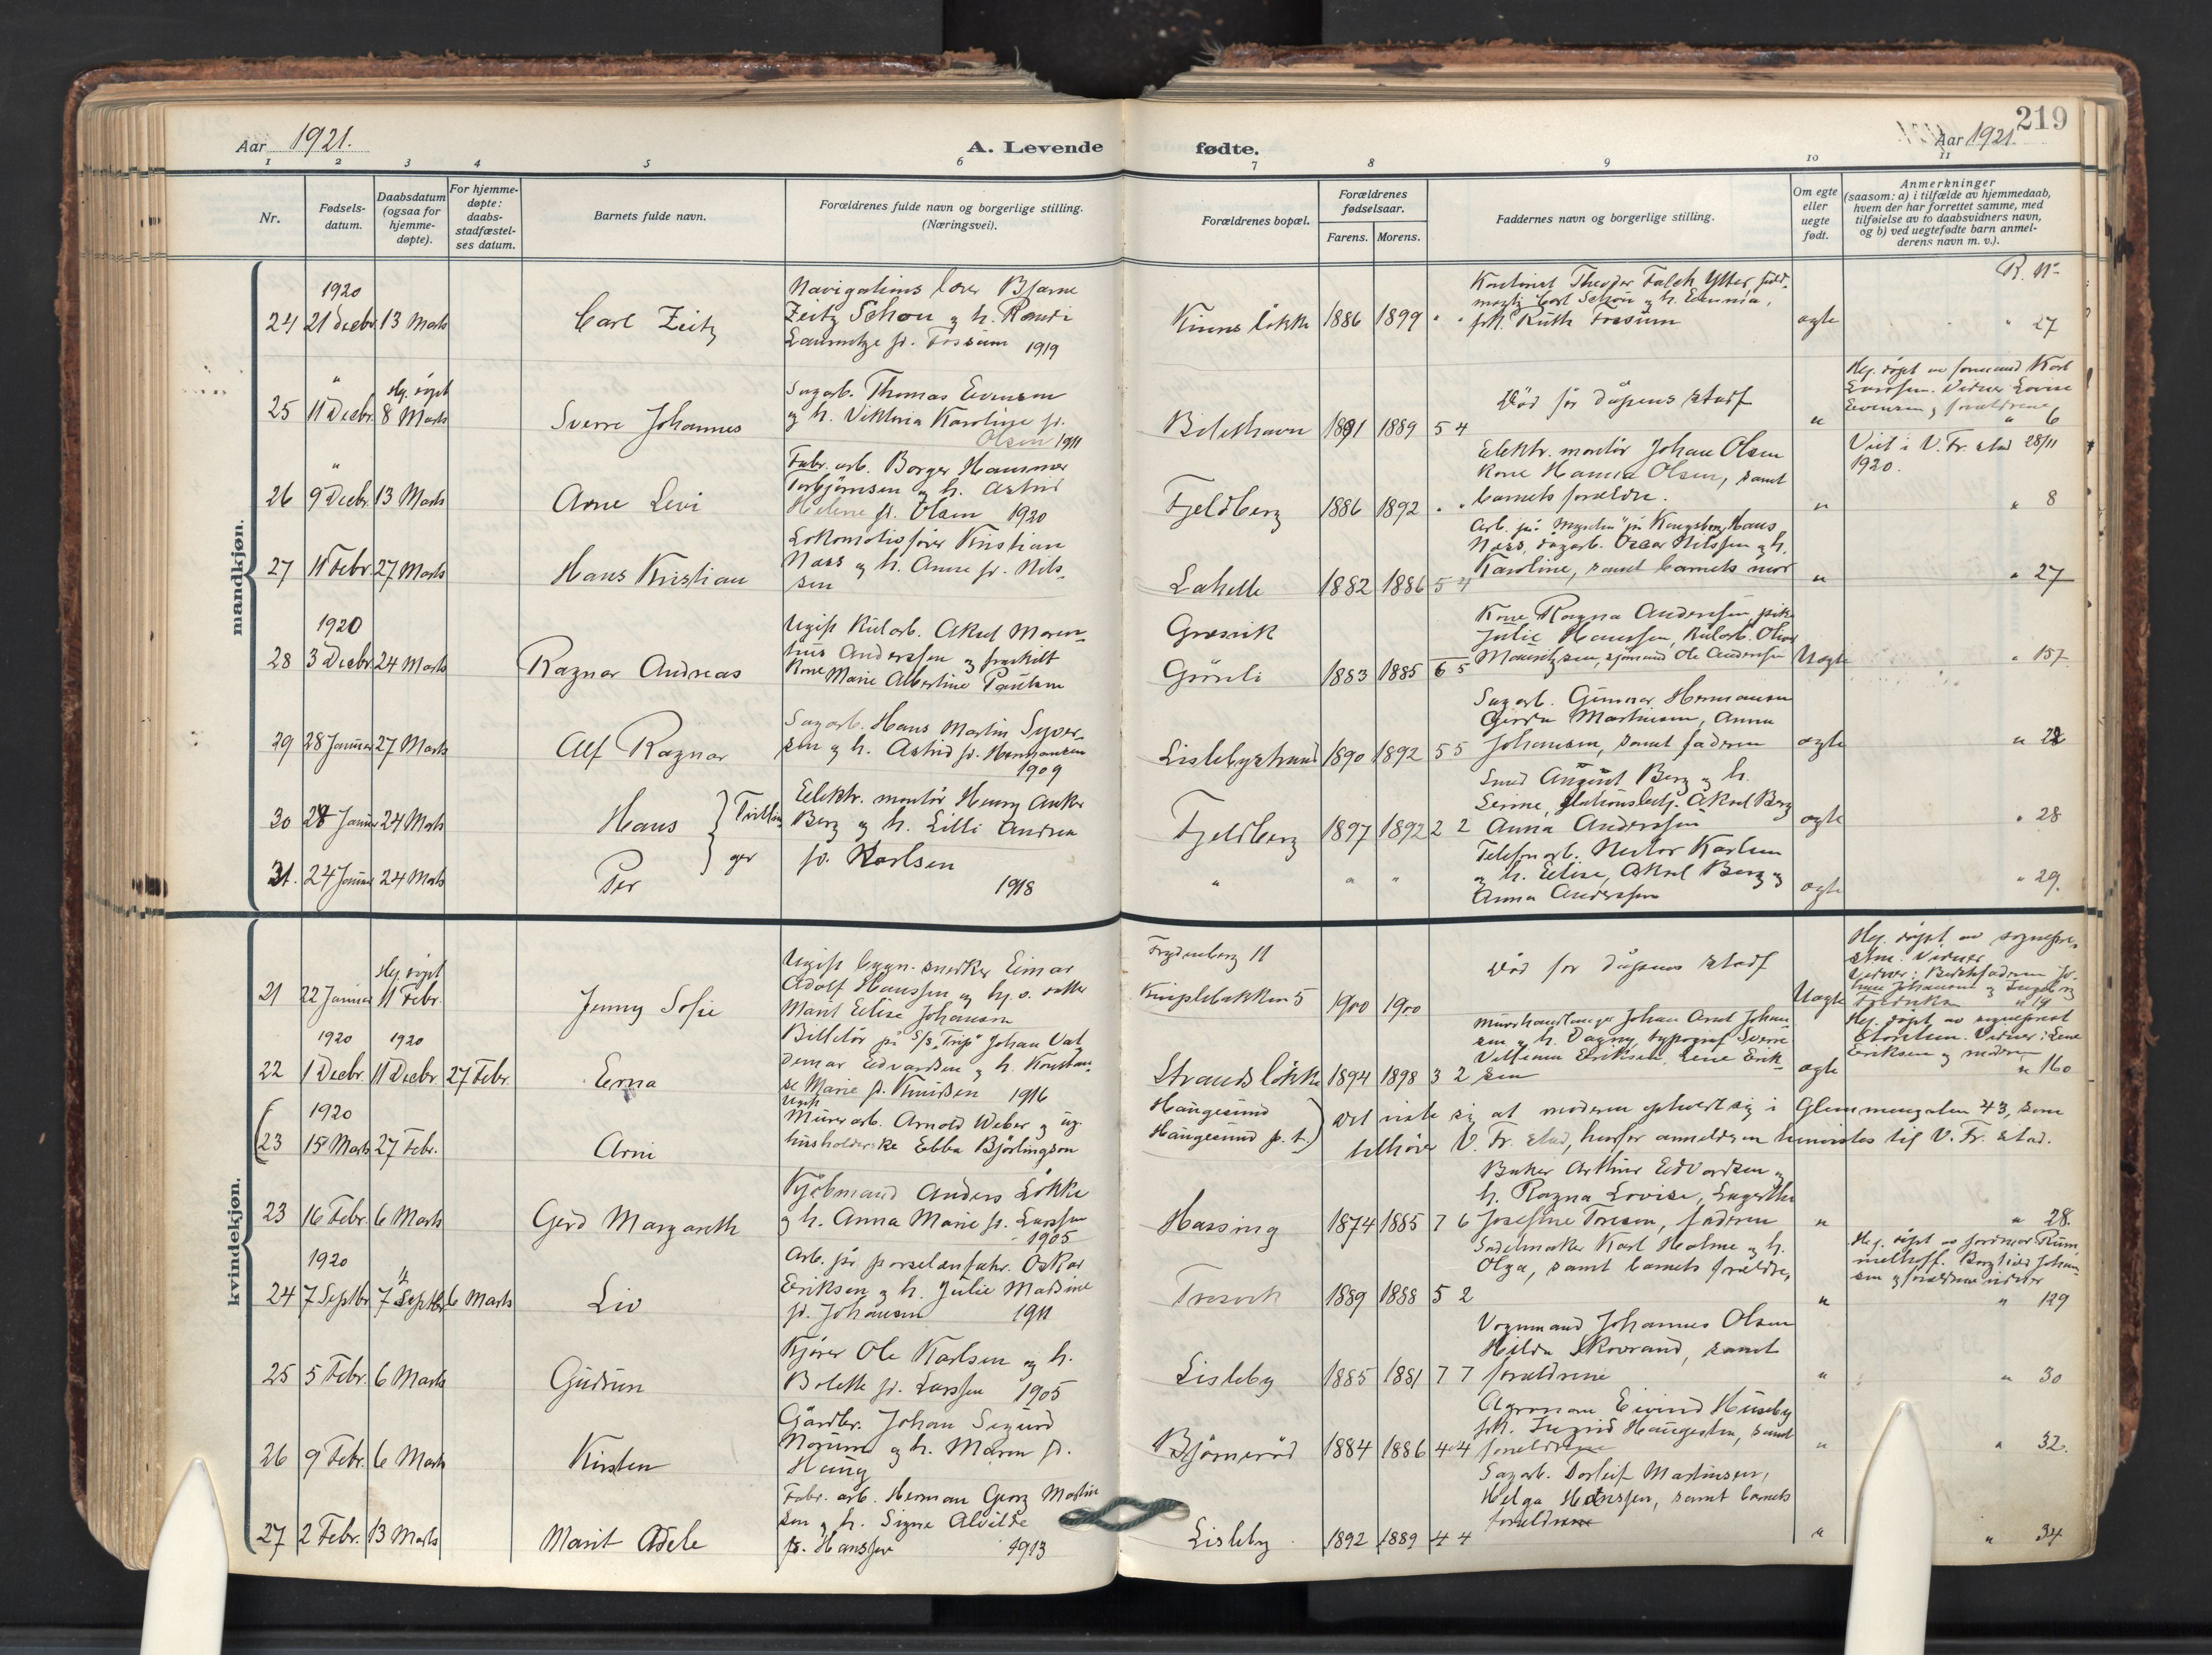 219
Aar 1921.
A. Levende
fødte.
Aar 1921
1 2 3 4 5 6 7 8 9 10 11
Nr.
Fødsels-
datum.
Daabsdatum
(ogsaa for
hjemme-
døpte).
For hjemme-
døpte:
daabs-
stadfæstel-
ses datum.
Barnets fulde navn.
Forældrenes fulde navn og borgerlige stilling.
(Næringsvei).
Forældrenes bopæl.
Forældrenes
fødselsaar.
Farens. Morens.
Faddernes navn og borgerlige stilling.
Om egte
eller
uegte
født.
Anmerkninger
(saasom: a) i tilfælde av hjemmedaab,
hvem der har forrettet samme, med
tilføielse av to daabsvidners navn,
og b) ved uegtefødte barn anmel-
derens navn m. v.).
mandkjøn.
1920
24 21 Decbr. 13 Marts
Carl Zeitz
Navigations lærer Bjarne
Zeitz Schou og h. Randi
f. Fossum 1919
1886 1899
Kontorist Theodor Falck Ytter, fuld-
mægtig Carl Schou og h. Emma,
frk. Ruth Fossum
ægte
R. Nr.
" 27
"
25 11 Decbr. 8 Marts
Hj. døpt
Sverre Johannes
Sagarb. Thomas Evensen
og h. Viktoria Karoline f.
Olsen 1911
1891 1889 5 4
Død før dåpens stadf
"
Hj. døpt av formand Karl
Vidner: Lovise
Evensen og forældrene
" 6
"
26 9 Decbr. 13 Marts
Arne Levi
Fabr. arb. Borger Hammer
Torbjørnsen og h. Astrid
Helene f. Olsen 1920
Fjeldberg
1886 1892
Elektr. montör Johan Olsen
Kone Hanna Olsen, samt
barnets forældre.
"
Viet i V. Fr. stad 28/11
1920.
" 8
27 11 Febr. 27 Marts
Hans Kristian
Lokomotivfører Kristian
Næss og h. Anne f. Nils-
sen
Lahelle
1882 1886 5 4
Kongsberg Hans
Næss, sagarb. Oscar Nilssen og h.
Karoline, samt barnets mor
"
" 27
1920
28 3 Decbr. 24 Marts
Ragnar Andreas
Ugift Kularb. Aksel Moren-
tius Anderssen og fraskilt
Kone Marie Albertine Paulsen
Gressvik
Grönli
1883 1885 6 5
Kone Ragna Anderssen, pike
Julie Hanssen, Kularb. Olaf
Mauritzsen, sjömand Ole Anderssen
Uægte
" 157
29 28 Januar 27 Marts
Alf Ragnar
Sagarb. Hans Martin Syver-
sen og h. Astrid f. Hermansen
1909
Lislebystrand
1890 1892 5 5
Sagarb. Gunnar Hermansen
Gerda Martinsen, Anna
Johansen, samt faderen
ægte
" 22
30 24 Januar 24 Marts
Hans
} Tvillin
ger
Elektr. montör Henry Anker
Berg og h. Lilli Andrea
f. Karlsen
1918
Fjeldberg
1897 1892 2 2
Smed August Berg og h.
Aksel Berg
Anna Anderssen
ægte
" 28
31. 24 Januar 24 Marts
Per
" " "
Telefonarb. Karlsen
og h. Elise, Aksel Berg og
Anna Anderssen
ægte
" 29.
kvindekjøn.
21 22 Januar 11 Febr.
Hj. døpt
Jenny Sofie
Ugift bygn. snedker Einar
Adolf Hanssen og hj. v. datter
Marit Elise Johansen
Frydenberg 11
Kniplebakken 5
1900 1900
Død før dåpens stadf
Uægte
Hj. døpt av sognepre-
Vidner
Johansen og Ingeborg
Fredriksen " 19
1920 1920
22 1 Decbr. 11 Decbr. 27 Febr.
Erna
Billettör på S/S "Trip" Johan Val-
demar Edvardsen og h. Konstan-
se Marie f. Knudsen 1916
Strandsløkke
1894 1898 3 2
Murerhandlanger Johan Arnt Johan-
sen og h. Dagny, typograf Sverre
Villiam Eriksen, Lene Erik-
sen
ægte
Hj. døpt av sogneprest
Vidner: Lene
Eriksen og moderen
" 160
1920
(23 15 Marts 27 Febr.
Arni
Ugift
Murerarb. Arnold Weber og ug.
husholderske Ebba Björlingson
Haugesund
Haugesund p. t.)
Det viste sig at moderen opholdt sig i Glemmengaten 43, som
tilhører V. Fr. stad, hvorfor anmeldsen henvistes til V. Fr. stad.
23 16 Febr. 6 Marts
Gerd Margareth
Kjøbmand Anders Løkke
og h. Anna Marie f. Larssen
1905
Hassing
1874 1885 7 6
Baker Arthur Edvardsen og
h. Ragna Lovise, Lagertha
Josefine Toresen, faderen
"
" 28.
1920
24 7 Septbr 7 Septbr 6 Marts
Liv
Arb. på porselænfabr. Oskar
Eriksen og h. Julie Madsine
f. Johansen 1911
Trosvik
1889 1888 5 2
Sadelmaker Karl Holme og h.
Olga, samt barnets forældre,
"
Hj. døpt av jordmor Rum-
melhoff. Johan-
sen og forældrene vidner
" 129
25 5 Febr. 6 Marts
Gudrun
Kjører Ole Karlsen og h.
Bolette f. Larssen 1905
Lisleby
1885 1881 7 7
Vognmand Johannes Olsen
Hilda Skovrand, samt
forældrene
"
" 30
26 9 Febr. 6 Marts
Kirsten
Gårdbr. Johan Sigurd
Norum og h. Maren f.
Haug
Bjørnerød
1884 1886 4 4
Agronom Eivind Huseby
frk. Ingrid Haugesten, samt
forældrene
"
" 32.
27 2 Febr. 13 Marts
Marit Adele
Fabr. arb. Herman Georg Martin
sen og h. Signe Alvilde
f. Hanssen 1913
Lisleby
1892 1889 4 4
Sagarb. Torleif Martinsen,
Helga Hanssen, samt barnets
forældrene
"
" 34